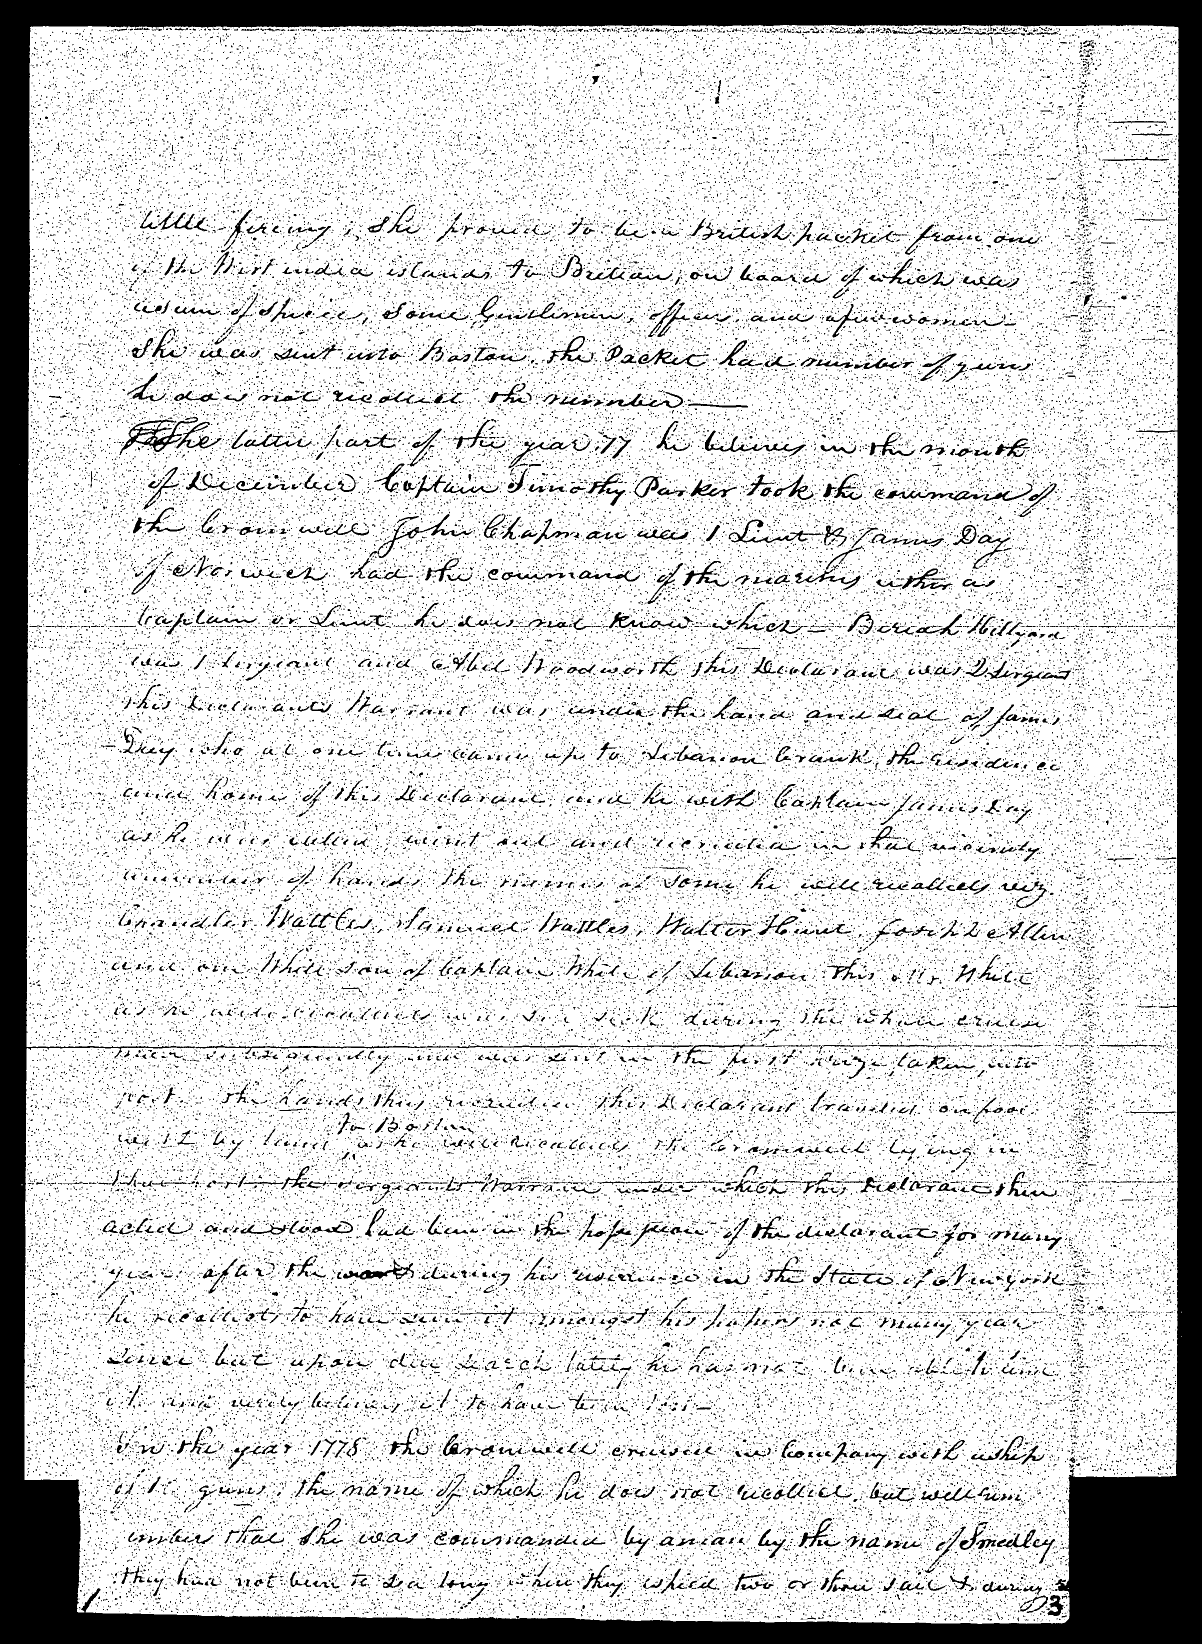 little fireing, She proved to be a British packet from one
of the West india islands to Britian, on board of which was
a sum of Specie, Some Gentlemen, officers, and a few women –
She was sent into Boston. the Packet had number of guns
he does not recollect the number —
The latter part of the year 77 he believes in the month
of December Captain Timothy Parker took the command of
the Cromwell John Chapman was 1 Lieut & James Day
of Norwich had the command of the marines either as
Captain or Lieut he does not know which – Beriah Hillyard
was 1 Sergeant and Abel Woodworth this Declarant was 2 Sergeant
this Declarants Warrant was under the hand and seal of James
Day who at one time came up to Lebanon Crank, the residence
and home of this Declarant, and he with Captain James Day
as he was called, went out and recruited in that vicinity
a number of hands the names of Some he well recollects viz.
Chandler Wattles, Samuel Wattles, Walter Hunt, Joseph Allen
and one White son of Captain White of Lebanon this Mr. White
as he well recollects was sea sick during the whole cruise
subsequently and was sent in the first prize taken, into
port. the hands thus recruited this Declarant traveled on foot
with by land to Boston as he well recollects the Cromwell lying in
that port. the Sergeants Warrant under which this Declarant then
acted and stood had been in the possession of the declarant for many
years after the war & during his residence in the State of New York
he recollects to have seen it amongst his papers not many year
since but upon due search lately he has not been able to find
it and verily believes it to have been lost –
In the year 1778 the Cromwell cruised in Company with a ship
of guns, the name of which he does not recollect, but well rem
embers that she was commanded by a man by the name of Smedley
they had not been to sea long when they espied two or three sail & during
3